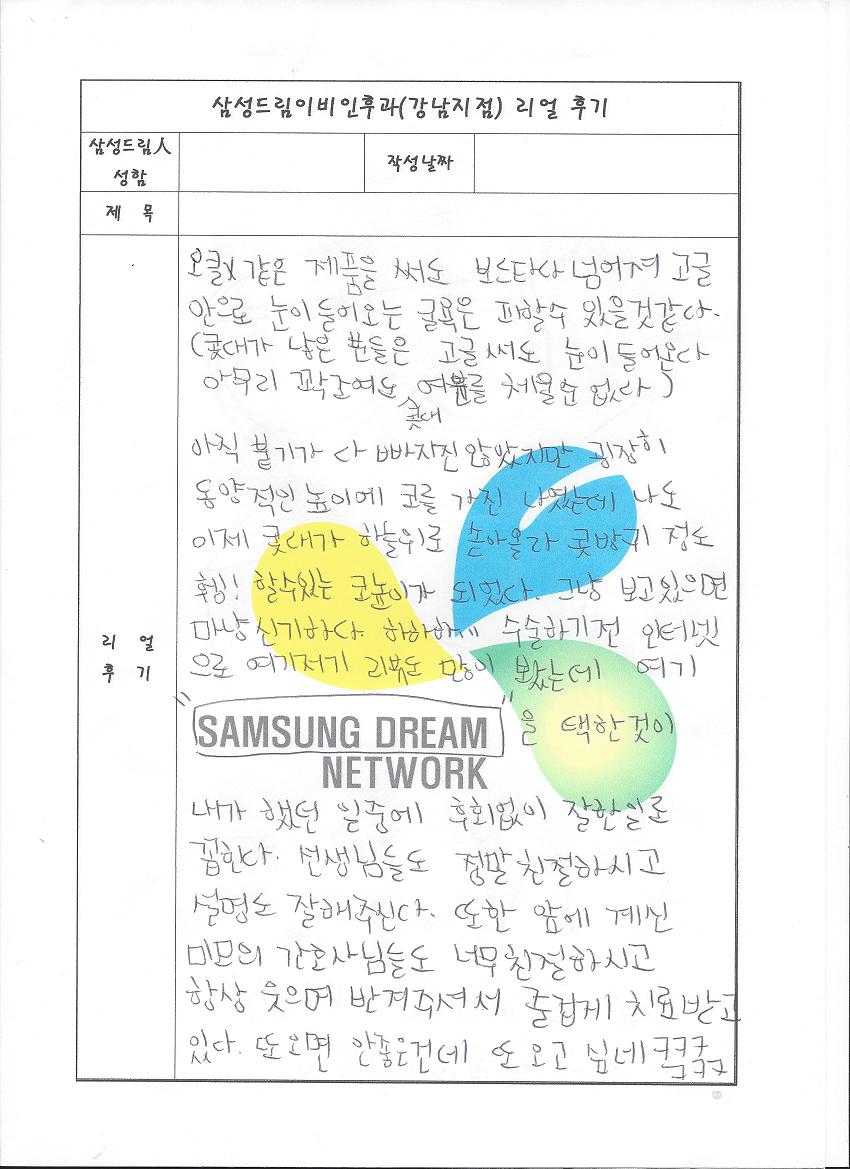 삼성드림이비인후과(강남지점) 리얼 후기
삼성드림人
성함
작성날짜
제 목
리 얼
후 기
오클x 같은 제품을 써도 보드타다 넘어져 고글
안으로 눈이 들어오는 굴욕은 피할수 있을것같다.
(콧대가 낮은 분들은 고글 써도 눈이 들어온다
아무리 꽉조여도 여분를 채울순 없다)
콧대
아직 붓기가 다 빠지진 않았지만 굉장히
동양적인 높이에 코를 가진 나였는데 나도
이제 콧대가 하늘위로 솟아올라 콧방귀 정도
흥! 할수있는 코높이가 되었다. 그냥 보고있으면
마냥 신기하다. 하하하하" 수술하기전 인터넷
으로 여기저기 리뷰도 많이 봤는데 여기
"SAMSUNG DREAM" 을 택한것이
NETWORK
내가 했던 일중에 후회없이 잘한일로
꼽힌다. 선생님들도 정말 친절하시고
설명도 잘해주신다. 또한 앞에 계신
미모의 간호사님들도 너무 친절하시고
항상 웃으며 반겨주셔서 즐겁게 치료받고
있다. 또오면 안좋은건데 또 오고 싶네 ㅋㅋㅋㅋㅋㅋ